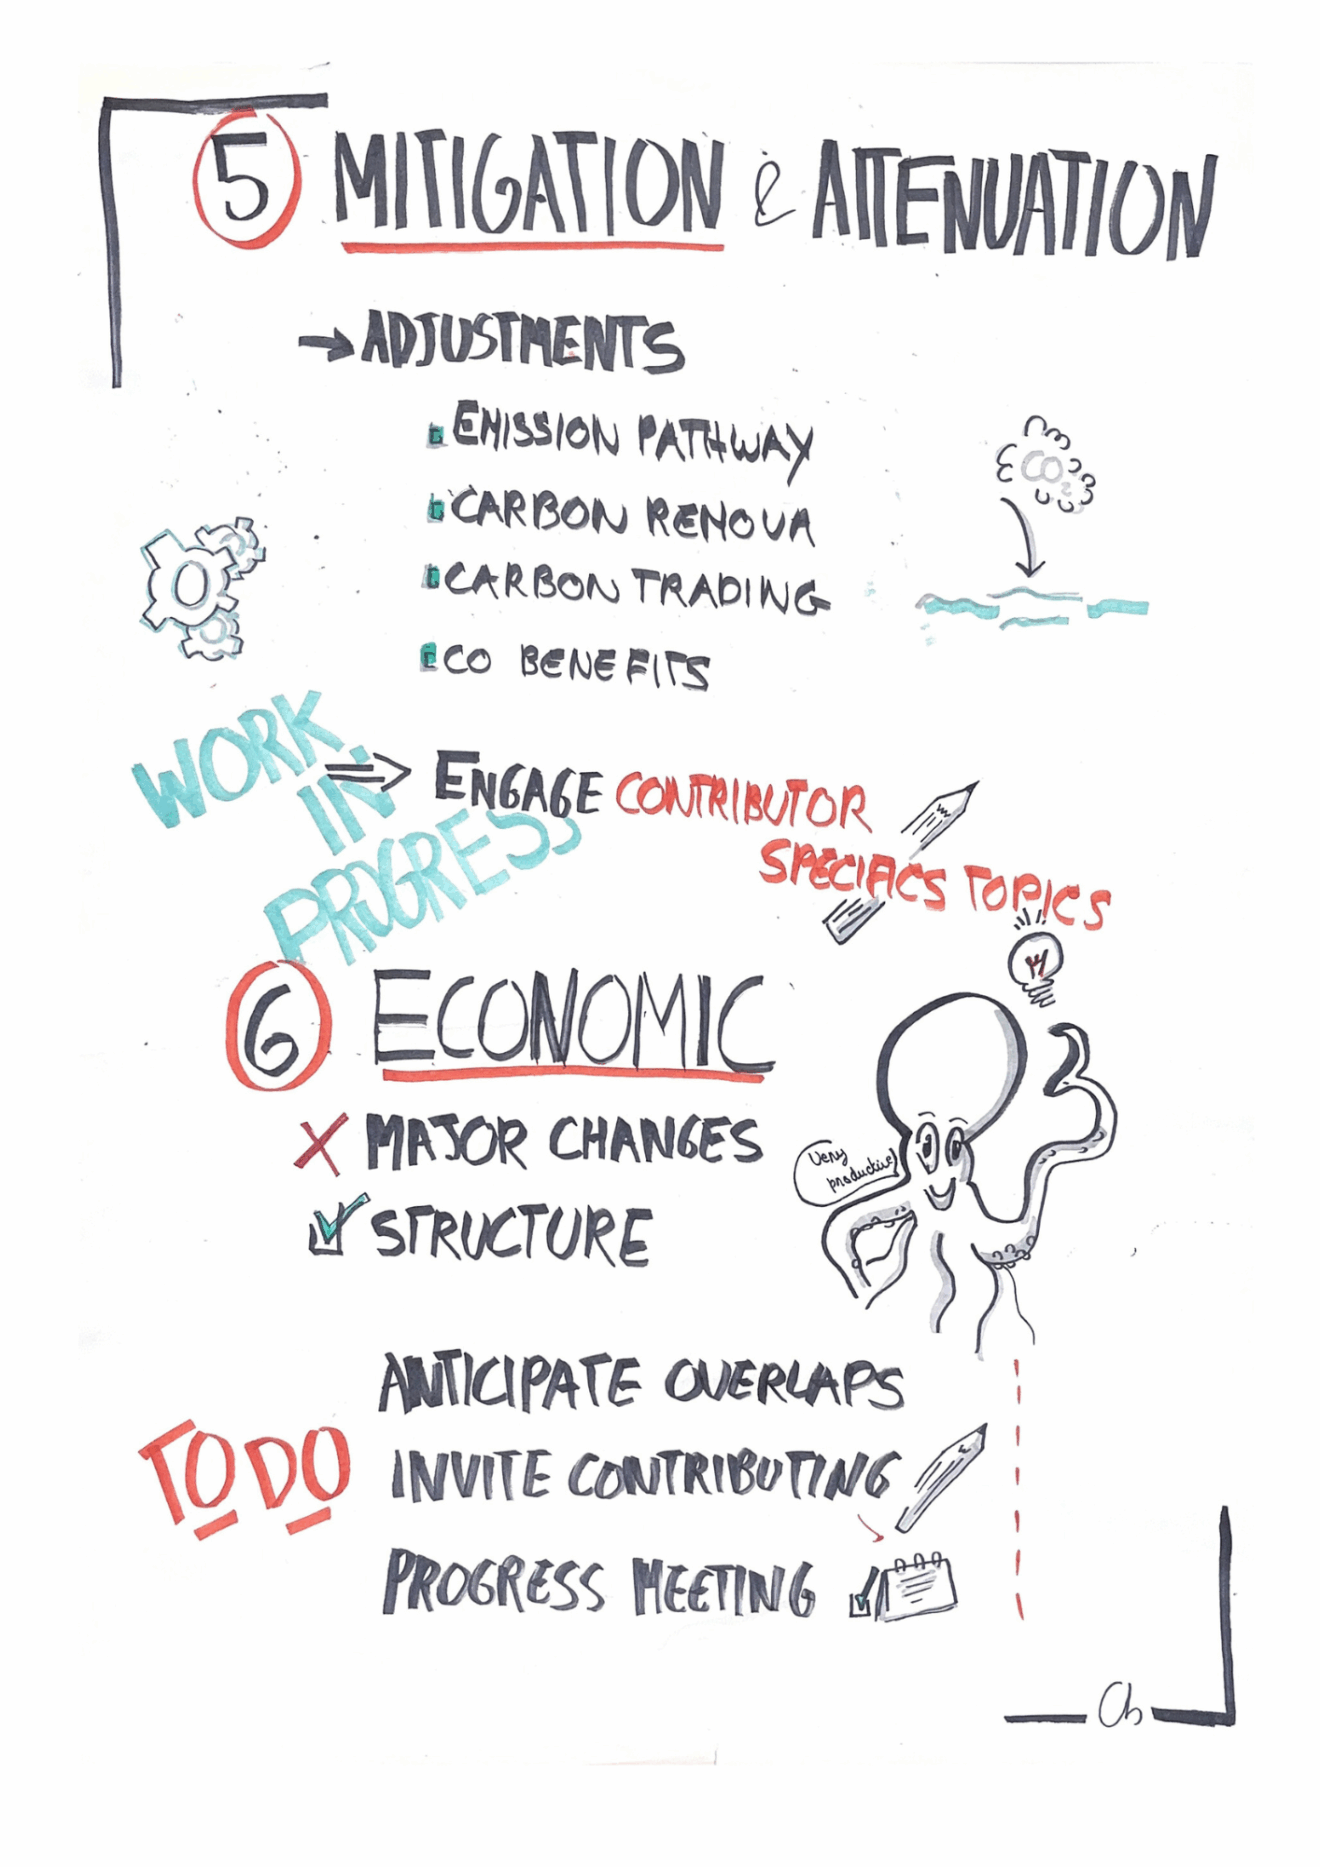 5 MITIGATION & ATTENUATION
→ ADJUSTMENTS
EMISSION PATHWAY
CARBON REMOVA
CARBON TRADING
CO BENEFITS
CO2
WORK
IN
PROGRESS
⇒ ENGAGE CONTRIBUTOR
SPECIFICS TOPICS
6 ECONOMIC
X MAJOR CHANGES
STRUCTURE
Very
productive!
TO DO
ANTICIPATE OVERLAPS
INVITE CONTRIBUTING
PROGRESS MEETING